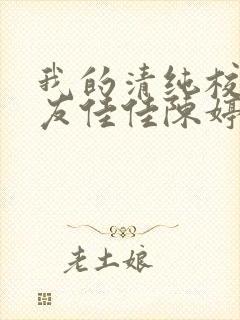 我的清纯校
友佳佳陈婷
老土娘